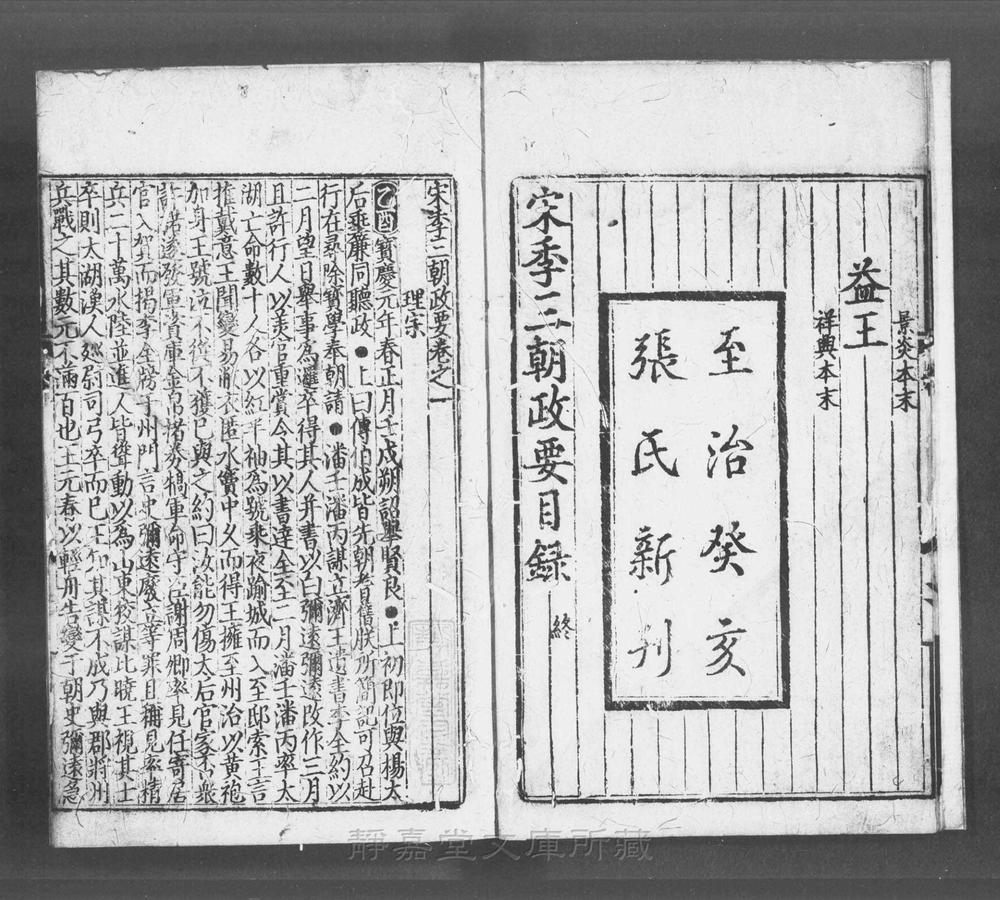 景炎本末
益王
祥興本末
至治癸亥
張氏新刊
宋季三朝政要目録 終
宋季三朝政要卷之一
理宗
乙酉寳慶元年春正月壬戌朔詔舉賢良●上初即位與楊太
后垂簾同聽政●上曰傅伯成皆先朝耆舊朕所簡記可召赴
行在尋除寳學奉朝請●潘壬潘丙謀立濟王遺書李全約以
二月望日舉事為邏卒得其人并書以白彌遠彌遠改作三月
且許行人以美官重賞令其以書達全至二月潘壬潘丙率太
湖亡命數十人各以紅半袖為號乘夜踰城而入至邸索王言
推戴意王聞變易敝衣匿水竇中久而得王擁至州治以黄袍
加身王號泣不從不獲已與之約曰汝能勿傷太后官家否衆
許諾遂發軍資庫金帛楮券犒軍命守臣謝周卿率見任寄居
官入賀而揭李全牓于州門言史彌遠廢立等罪且稱見率精
兵二十萬水陸並進人皆聳動以為山東狡謀比曉王視其士
卒則太湖漁人巡尉司弓卒而已王知其謀不成乃與郡將州
兵戰之其數元不滿百也王元春以輕舟告變于朝史彌遠急
靜嘉堂文庫所藏